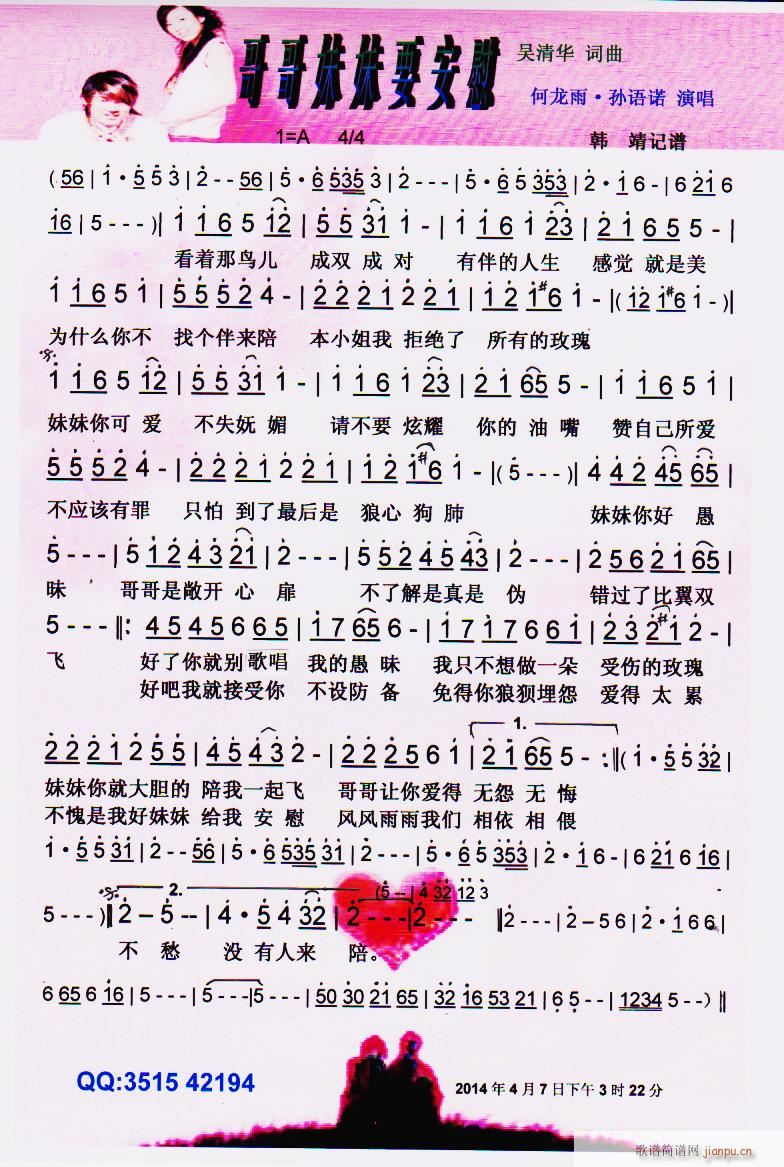 哥哥妹妹要安慰 吴清华 词曲
何龙雨·孙语诺 演唱
1=A 4/4 韩 靖记谱
(56|1·553|2--56|5·65353|2---|5·65353|2·16-|6216
16|5---)|116512|55311-|116123|21655-|
看着那鸟儿 成双 成 对 有伴的人生 感觉 就是美
11651|55524-|2221221|121#61-|(121#61-)|
为什么你不 找个伴来陪 本小姐我 拒绝了 所有的玫瑰
116512|55311-|116123|21655-|11651|
妹妹你可 爱 不失妩 媚 请不要 炫耀 你的 油 嘴 赞自己所爱
55524-|2221221|121#61-|(5---)|4424565|
不应该有罪 只怕 到了最后是 狼心 狗 肺 妹妹你好 愚
5---|5124321|2---|5524543|2---|2562165|
昧 哥哥是敞开 心 扉 不了解是真是 伪 错过了比翼双
5---‖:45456665|17656-|1717661|232#12-|
飞 好了你就别歌唱 我的愚 昧 我只不想做一朵 受伤的玫瑰
好吧我就接受你 不设防 备 免得你狼狈埋怨 爱得 太 累
1.
2221255|45432-|2222561|21655-:‖(1·5532|
妹妹你就大胆的 陪我一起飞 哥哥让你爱得 无怨 无 悔
不愧是我好妹妹 给我 安 慰 风风雨雨我们 相依 相 偎
1·5531|2--56|5·65353 1|2---|5·65353|2·16-|6216 16|
2. (5--|432123
5---)‖2-5--|4·5432|2---|2--- ‖2---|2-56|2·166|
不 愁 没 有人来 陪。
665616|5---|5---|5---|50302165|32165321|55--|12345--)‖
QQ:3515 42194
2014年4月7日下午3时22分
歌谱简谱网
jianpu.cn